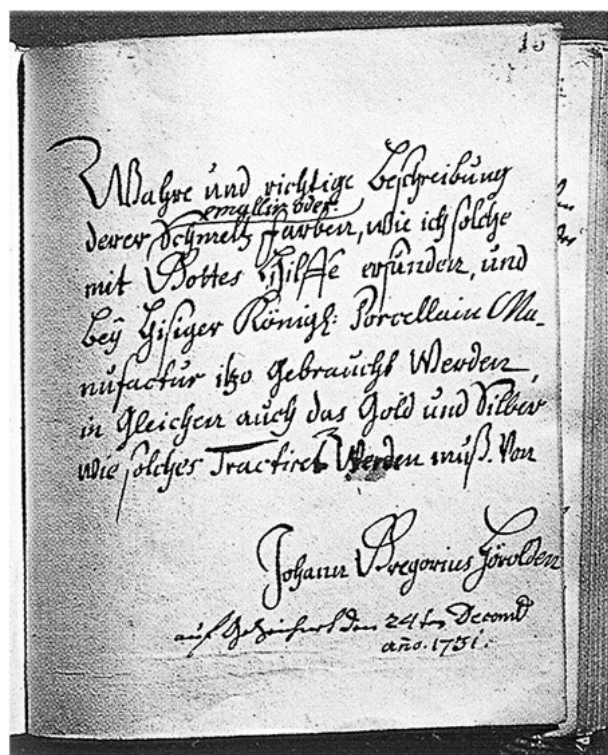 15
Wahre und richtige Beschreibung
emallir oder
derer Schmeltz farben, wie ich solche
mit Gottes Hilffe erfunden, und
beÿ hisiger Königl: Porcellain Ma-
nufactur itzo Gebraucht Werden,
in Gleichen auch das Gold und Silber
wie solches Tractiret Werden muß. Von
Johann Gregorius Höroldten
auf Gezeichnet den 24ten Decemb
año. 1731.